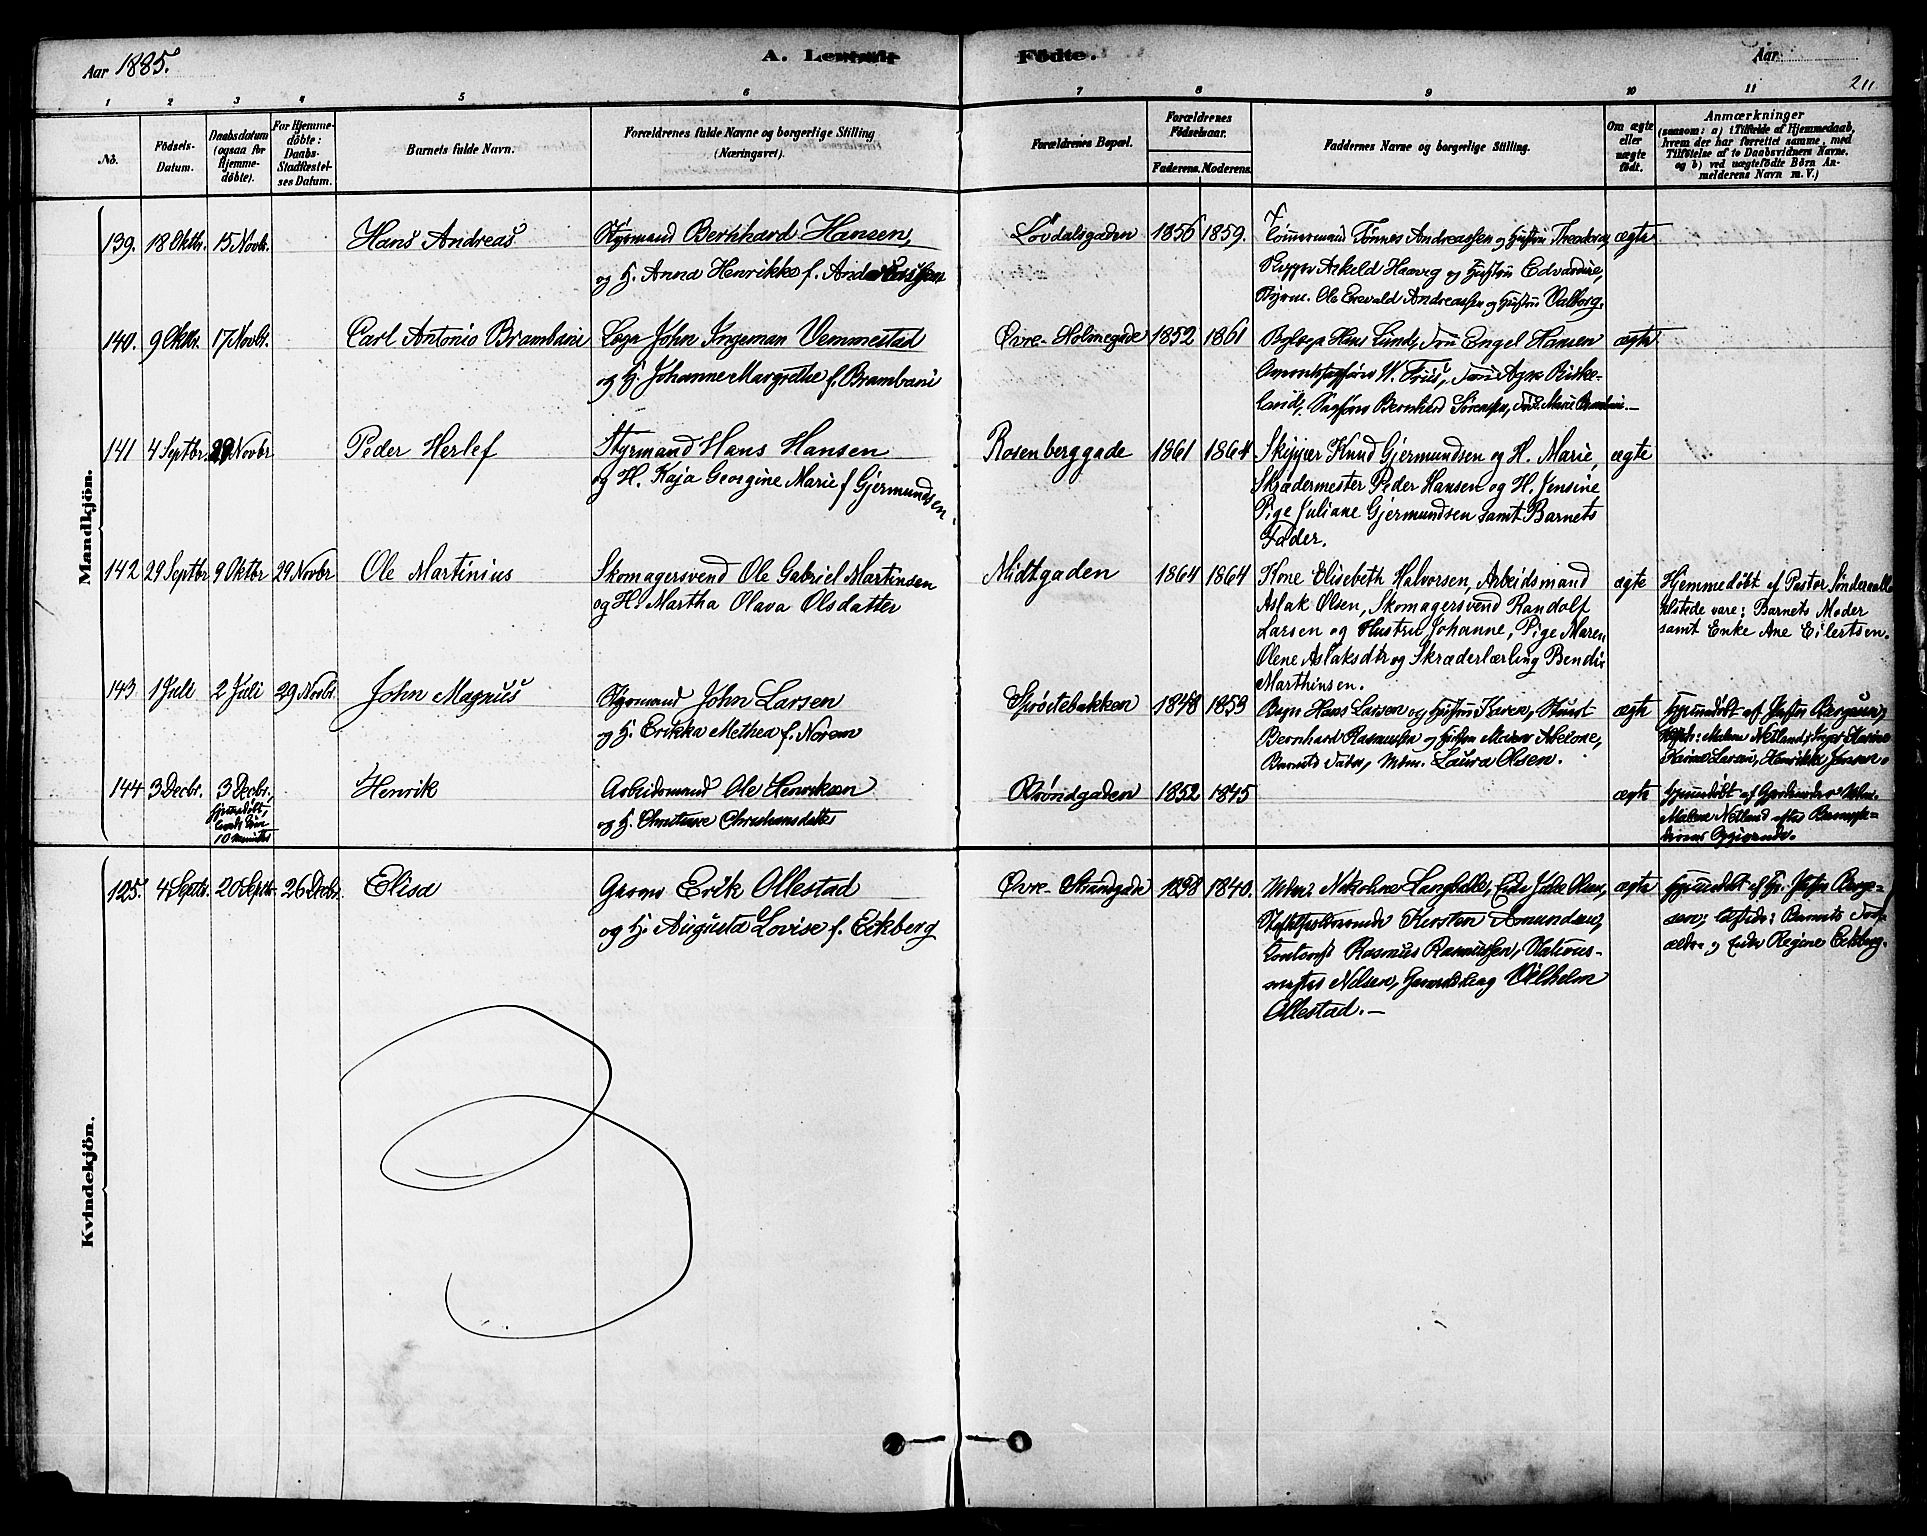 Aar 1885.
A. Levende
Födte.
Aar
211
1 2 3 4 5 6 7 8 9 10 11
No.
Födsels-Datum.
Daabsdatum (ogsaa for Hjemme-döbte).
For Hjemme-döbte: Daabs-Stadfæstel-ses Datum.
Barnets fulde Navn.
Forældrenes fulde Navne og borgerlige Stilling (Næringsvei).
Forældrenes Bopæl.
Forældrenes Födselsaar.
Faderens. Moderens.
Faddernes Navne og borgerlige Stilling.
Om ægte eller uægte födt.
Anmærkninger
(saasom: a) i Tilfælde af Hjemmedaab,
hvem der har forrettet samme, med
Tilföielse af to Daabsvidners Navne.
og b) ved uægtefödte Börn An-
melderens Navn m. V.)
Mandkjön.
139. 18 Oktbr. 15 Novbr. Hans Andreas Styrmand Bernhard Hansen, Løvdalsgaden 1856 1859. Tømmermand Tønnes Andreassen og Hustru Theodora, ægte
og H. Anna Henrikke f.
Skipper Askeld Haaveg og Hustru Edvardine,
Styrm. Ole Enevald Andreassen og Hustru Valborg.
140. 9 Oktbr. 17 Novbr. Carl Antonio Brambani Læge John Ingeman Vemmestad Øvre-Holmegade 1852 1861 Bylæge Hans Lund, Fru Engel Hansen ægte
og H. Johanne Margrethe f. Brambani
W. Friis,
land, Sagfører Bernhard Sørensen, Marie Brambani.—
141 4 Septbr. 29 Novbr Peder Herlef Styrmand Hans Hansen Rosenberggade 1861 1864 Skipper Knud Gjermundsen og H. Marie, ægte
og H. Kaja Georgine Marie f Gjermundsen.
Skrædermester Peder Hansen og H. Jensine
Pige Juliane Gjermundsen samt Barnets
Fader.
142 29 Septbr 9 Oktbr 29 Novbr Ole Martinius Skomagersvend Ole Gabriel Martinsen Midtgaden 1864 1864 Kone Elisebeth Halvorsen, Arbeidsmand ægte Hjemmedøbt af Pastor
og H. Martha Olava Olsdatter
Aslak Olsen, Skomagersvend Randolf
tilstede vare: Barnets Moder
Larsen og Hustru Johanne, Pige Maren
samt Enke Ane Eilertsen.
Olene Aslaksdtr og Skræderlærling Bendix
Marthinsen.
143 1 Juli 2 Juli 29 Novbr. John Magnus Styrmand John Larsen Sprøitebakken 1848 1853 Hans Larsen og Hustru Karen, ægte Hjemmedøbt af Pastor Bergesen,
og H. Erikka Methea f. Noren
Bernhard Rasmussen og Hustru Maren Abelone,
Malene Netland, Inger Karine
Barnets Fader, Mdm. Laura Olsen.
Larsen, Henrikke Jensen.
144 3 Decbr. 3 Decbr. Henrik Arbeidsmand Ole Henriksen 1852 1845 ægte Hjemmedøbt af Gjordemoder Mdm.
Hjemmedøbt, levede kun 10 minutter
og H. Christiane Christiansdatter
Malene Netland efter
Opgivende.
Kvindekjön.
125. 4 Septbr. 20 Septbr. 26 Decbr. Elisa Erik Ollestad Øvre Strandgade 1838 1840. Langballe, Enke Olsen, ægte Hjemmedøbt af Hr. Pastor Berge-
og H. Augusta Lovise f. Eckberg
Kirsten Amundsen,
sen; Barnets For-
Kontorist Rasmus Rasmussen, Stations-
ældre og Enke Regine Eckberg.
mester Nelsen, Vilhelm
Ollestad.—